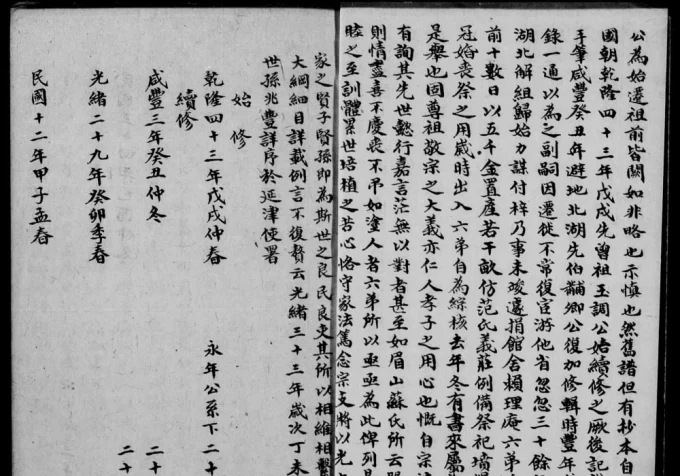 公為始遷祖前皆闕如非略也示慎也然舊譜但有抄本自
國朝乾隆四十三年戊戌先曾祖玉調公始續修之厥後記
手筆咸豐癸丑年避地北湖先伯黼卿公復加修輯時豐年
錄一通以為之副嗣因遷徙不常復宦游他省忽忽三十餘
湖北解組歸始力謀付梓乃事未竣遽捐館舍賴理庵六弟
前十數日以五千金置產若干畝仿范氏義莊例備祭祀墳
冠婚喪祭之用歲時出入六弟自為綜核去年冬有書來屬
是舉也固尊祖敬宗之大義亦仁人孝子之用心也慨自宗
有詢其先世懿行嘉言茫無以對者甚至如眉山蘇氏所云
則情盡喜不慶喪不弔如塗人者六弟所以亟亟為此俾列
睦之至訓體累世培植之苦心恪守家法篤念宗支將以光
家之賢子賢孫即為斯世之良民良吏其所以相維相繫
大綱細目詳載例言不復贅云光緒三十三年歲次丁未
世孫兆豐詳序於延津使署
始修
乾隆四十三年戊戌仲春 永年公系下二十
續修
咸豐三年癸丑仲冬 二十
光緒二十九年癸卯季春 二十
民國十二年甲子孟春